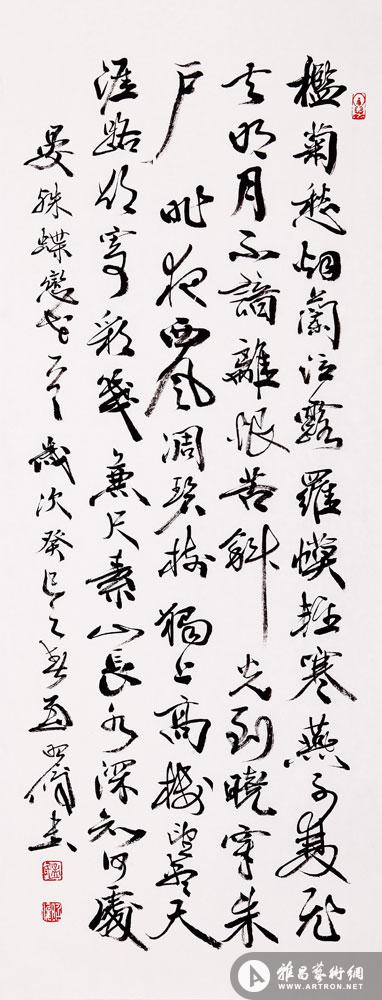 檻菊愁烟蘭泣露羅幙輕寒燕子雙飛
去明月不諳離恨苦斜光到曉穿朱
戶昨夜西風凋碧樹獨上高樓望盡天
涯路欲寄彩箋兼尺素山長水深知何處
晏殊蝶戀花一首歲次癸巳之春書
雅昌藝術網
WWW.ARTRON.NET